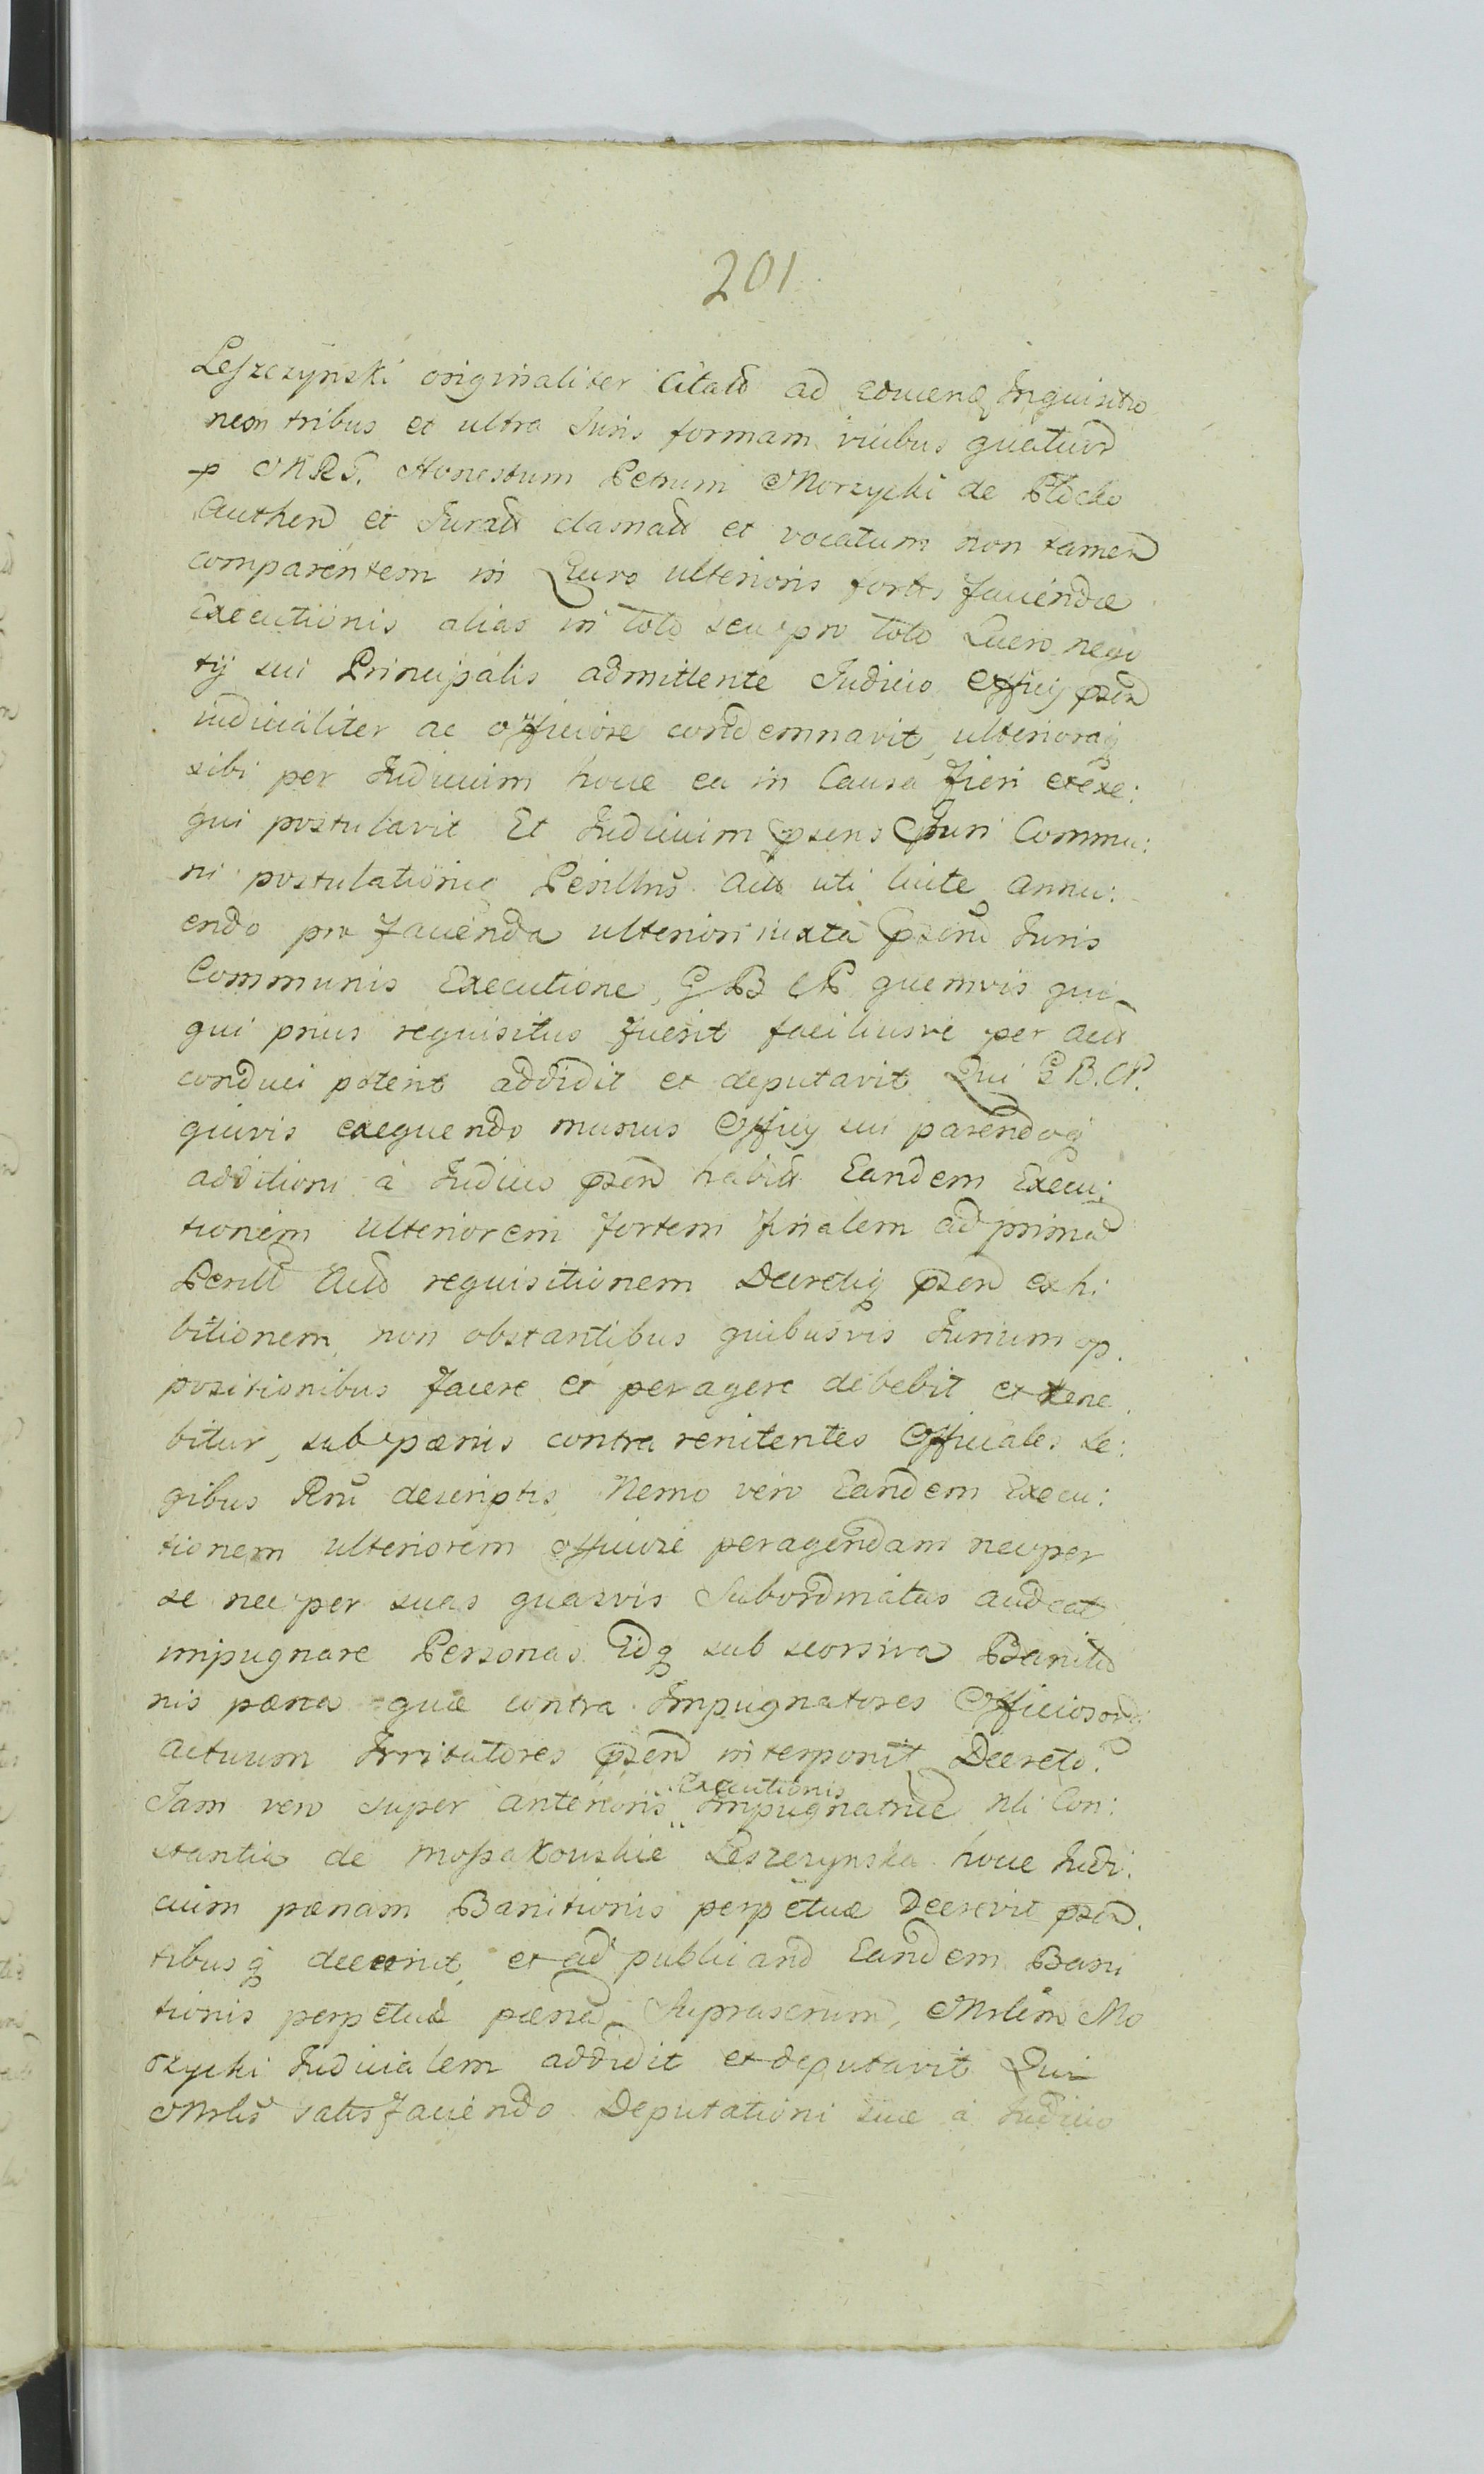 201
Leszczynski originaliter Citatũ ad eorumq Inquisitio
nem tribus et ultra Juris formam vicibus quatuor
p MRG. Honestum Petrum Morzycki de Plocko
Authen et Juratũ clamatũ et vocatum non tamen
comparentem in Lucro ulterioris fortis faciendæ
Executionis alias in toto seu pro toto Lucro nego
tij sui Principalis admittente Judicio Officij psen
iudicialiter ac officiose condemnavit, ulterioraq
sibi per Judicium hocce ea in Causa fieri et exe:
qui postulavit Et Judicium psens Juri Commu:
ni postulationiq Perillris Act uti licite annu:
endo pro facienda ulteriori iuxta psens Juris
Communis Executione, G B CP quemvis qui
qui prius requisitus fuerit faciliusve per act
conduci poterit addidit et deputavit Qui G B. CP.
quivis exequendo munus Officij sui parendoq
additioni à Judicio psen habitæ Eandem Execu:
tionem ulteriorem fortem finalem ad primã
Perill Act requisitionem Decretiq psen exhi:
bitionem, non obstantibus quibusvis Jurium op.
positionibus facere et peragere debebit et tene
bitur, sub pænis contra renitentes Officiales Le:
gibus Rni descriptis, Nemo vero Eandem Execu:
tionem ulteriorem officiose peragendam nec per
se nec per suas quasvis Subordinatas audeat
impugnare Personas Idq sub seorsiva Banitio
nis pæna quæ contra Impugnatores Officiosorũ
actuum Irritatores psen interponit Decreto.
Jam vero super anterioris Executionis Impugnatrice Nli Con:
stantia de Mossakowskie Leszczynska hocce Judi:
cium pænam Banitionis perpetuæ Decrevit psen.
tibusq decernit, et ad publicand Eandem Bani
tionis perpetuæ pænã Suprascrium, Mrlem Mo
rzycki Judicialem addidit et deputavit Qui
Mrlis satisfaciendo Deputationi suæ à Judicio